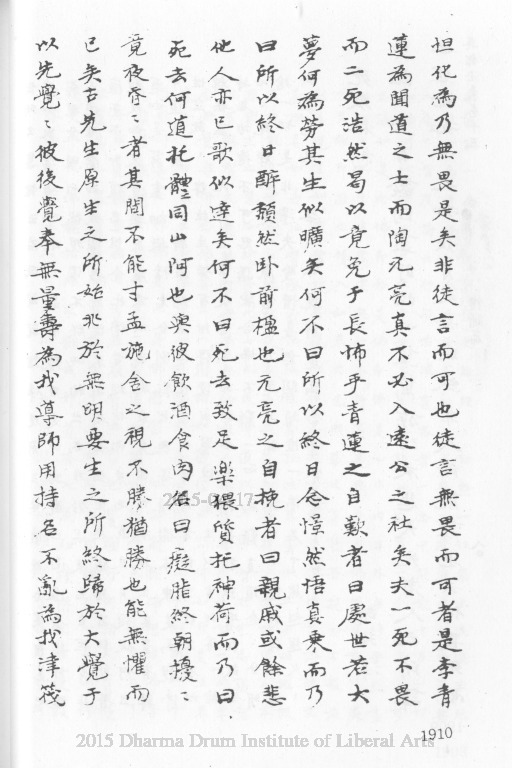 怛化為乃無畏是矣非徒言而可也徒言無畏而可者是李青
蓮為聞道之士而陶元亮真不必入遠公之社矣夫一死不畏
而二死浩然曷以竟免于長怖乎青蓮之自歎者曰處世若大
夢何為勞其生似曠矣何不曰所以終日念憬然悟真乘而乃
曰所以終日醉頹然臥前楹也元亮之自挽者曰親戚或餘悲
他人亦已歌似達矣何不曰死去致足樂猥質托神荷而乃曰
死去何道托體同山阿也與彼飲酒食肉名曰癡脂終朝擾〻
竟夜昏〻者其間不能寸盂施舍之視不勝猶勝也能無懼而
已矣古先生原生之所始非於無明要生之所終歸於大覺于
以先覺〻彼後覺奉無量壽為我導師用持名不亂為我津筏
1910
2015 Dharma Drum Institute of Liberal Arts